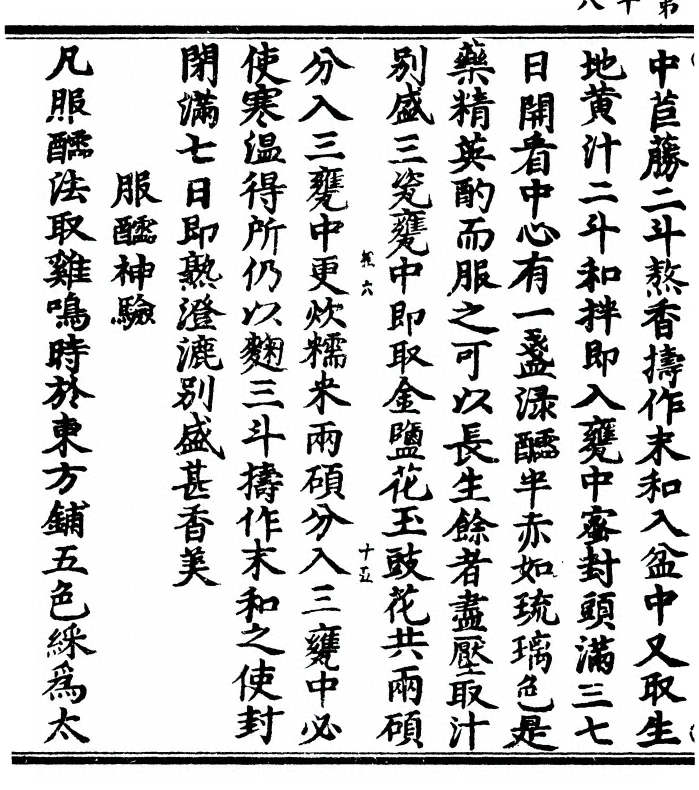 中苣蕂二斗熬香擣作末和入盆中又取生
地黄汁二斗和拌即入甕中密封頭滿三七
日開看中心有一盞渌醹半赤如琉璃色是
藥精英酌而服之可以長生餘者盡壓取汁
別盛三瓷甕中即取金鹽花玉豉花共兩碩
十五
分入三甕中更炊糯米兩碩分入三甕中必
使寒温得所仍以麴三斗擣作末和之使封
閉滿七日即熟澄漉別盛甚香美
服醹神驗
凡服醹法取雞鳴時於東方鋪五色綵為太